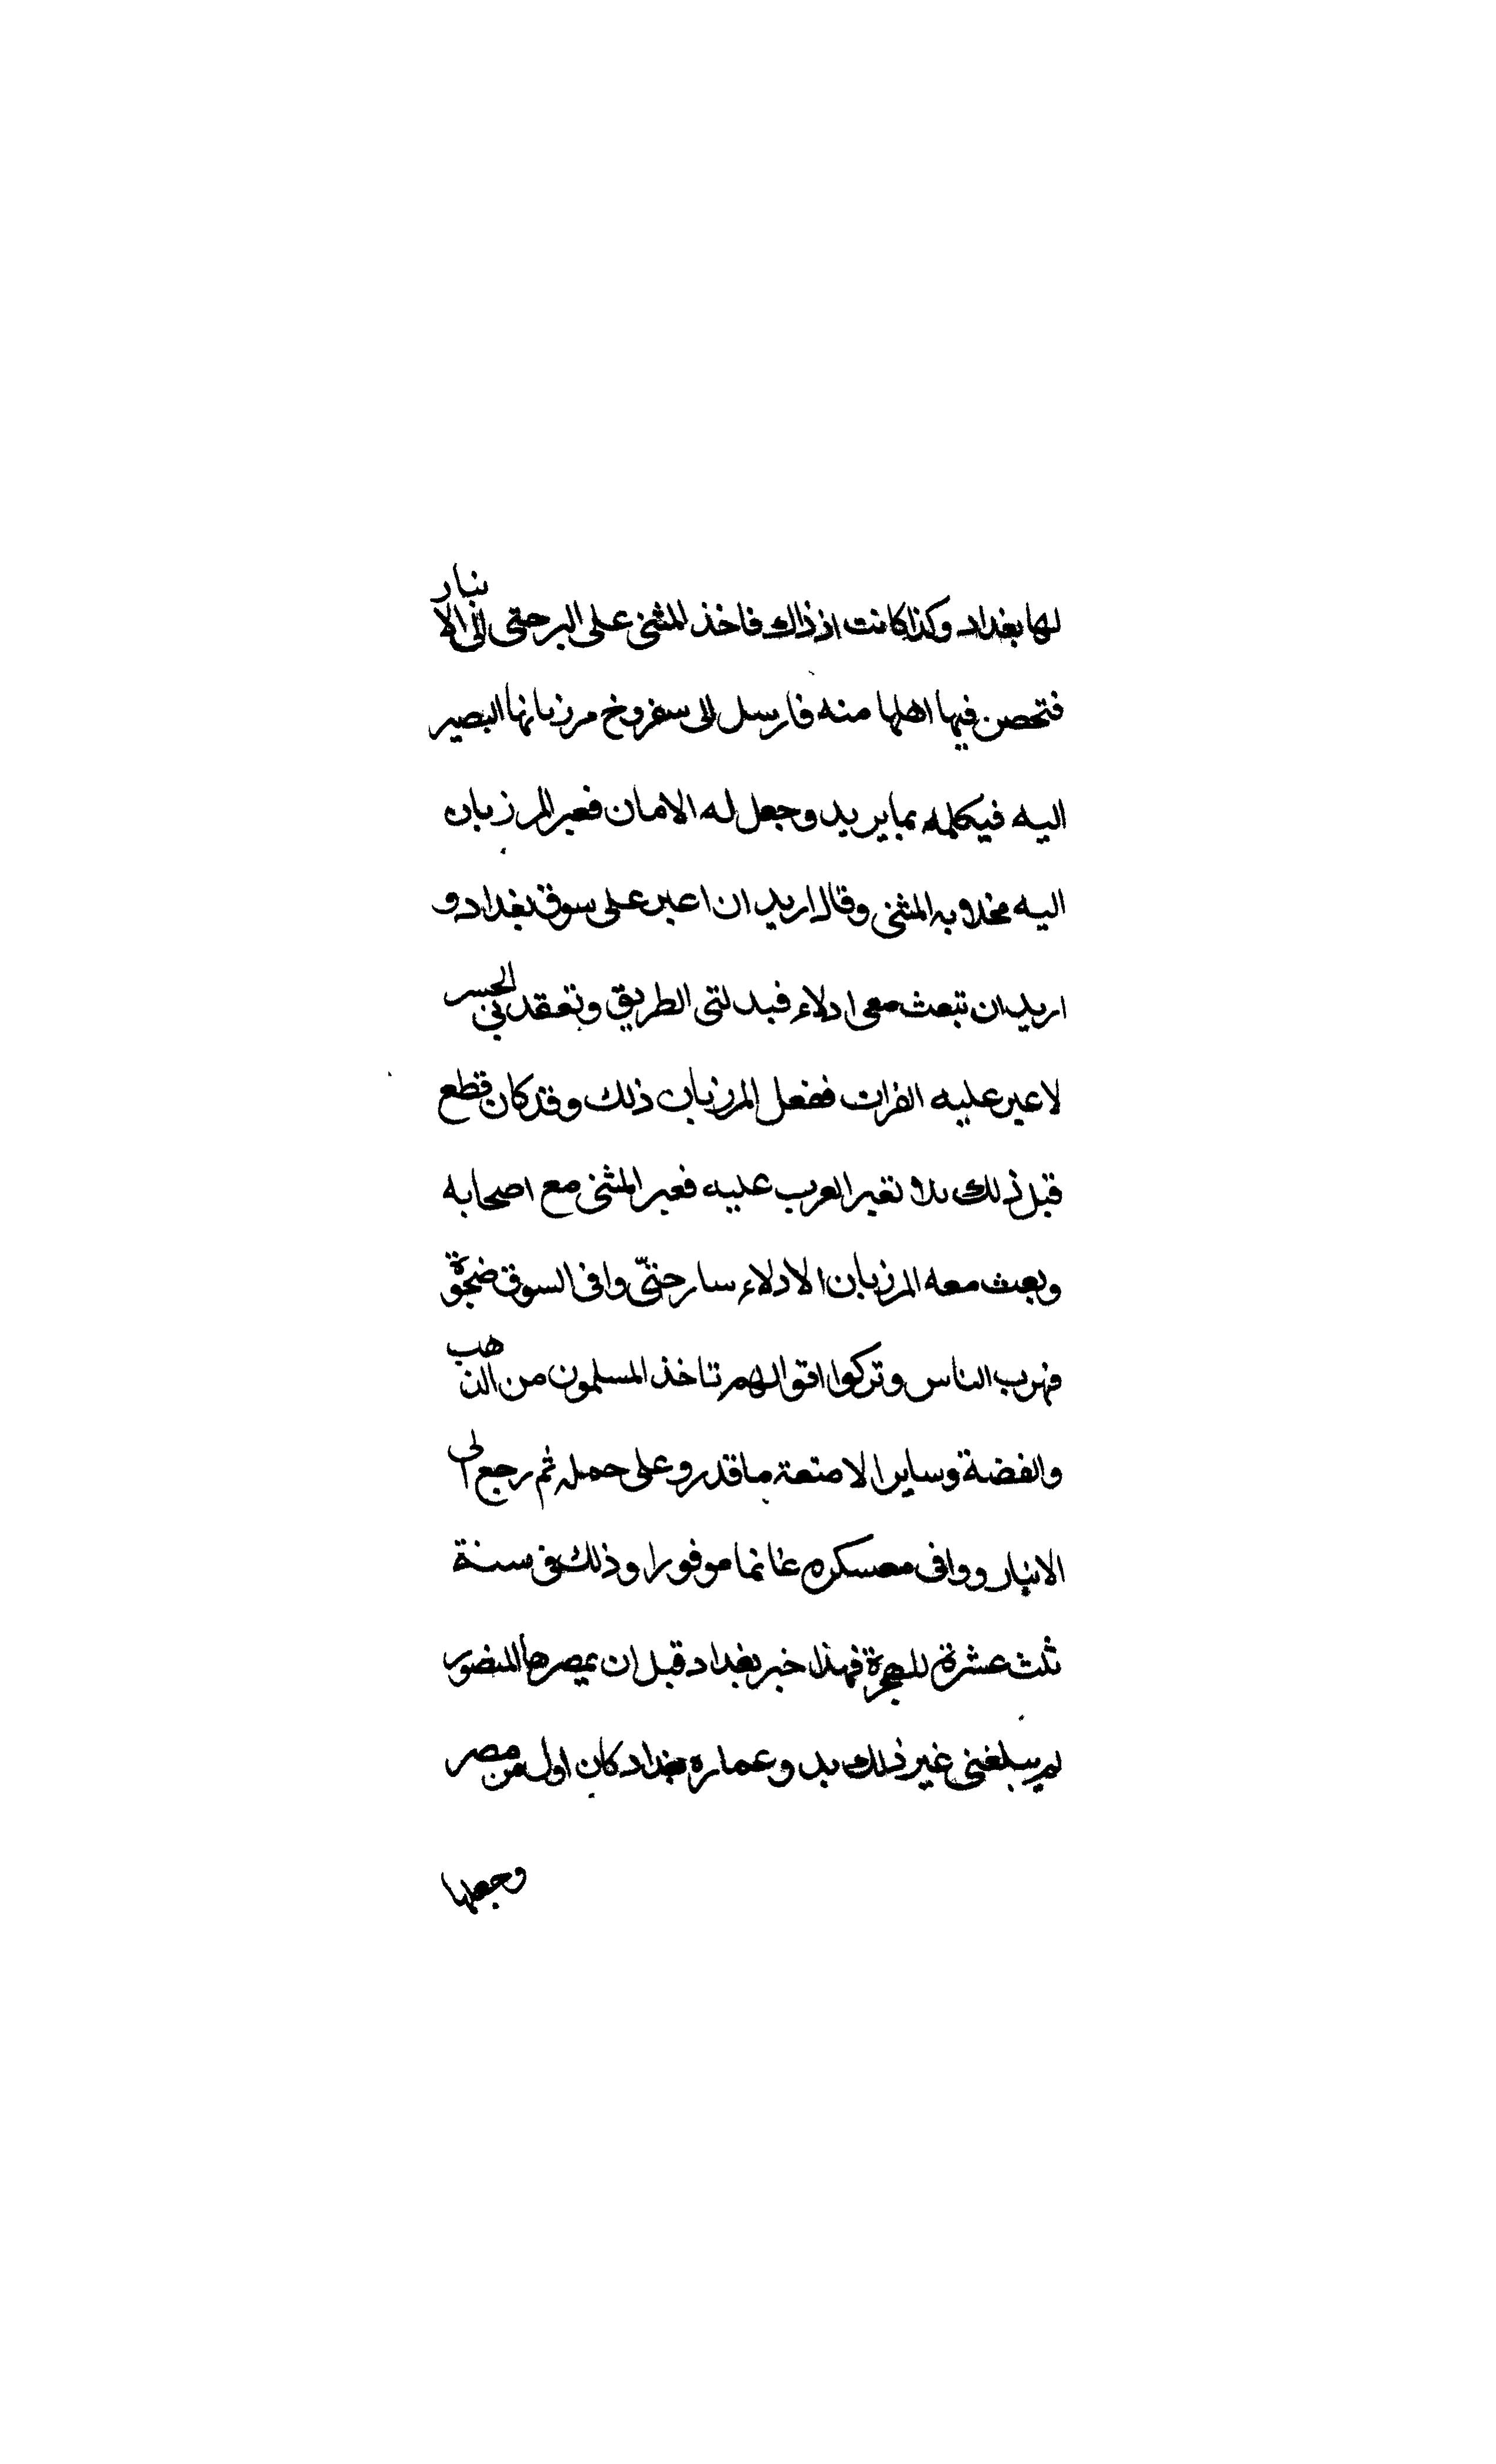 لها بغداد وكذا كانت اذ ذاك فاخذ المثنى على البر حتى اتى الانبار
فتحصن فيها اهلها منه فارسل الى سفروخ مرزبانها البصير
اليه فيكلمه بما يريد وجعل له الامان فعبر المرزبان
اليه فخلا به المثنى وقال اريد ان اعبر على سوق بغداد و
اريد ان تبعث معى ادلاء فيدلنى الطريق وتعقد لى الجسر
لاعبر عليه الفرات ففعل المرزبان ذلك وقد كان قطع
قبل ذلك لئلا تعبر العرب عليه فعبر المثنى مع اصحابه
وبعث معه المرزبان الادلاء سار حتّى وافى السوق ضحوة
فهرب الناس وتركوا اموالهم فاخذ المسلمون من الذهب
والفضة وساير الامتعة ما قدروا على حمله ثم رجع الى
الانبار ووافى معسكره غانما موفورا وذلك فى سنة
ثلث عشرة للهجرة فهذا خبر بغداد قبل ان يمصرها المنصور
لم يبلغنى غير ذلك بدو عماره بغداد كان اول من مصر
وجعلها